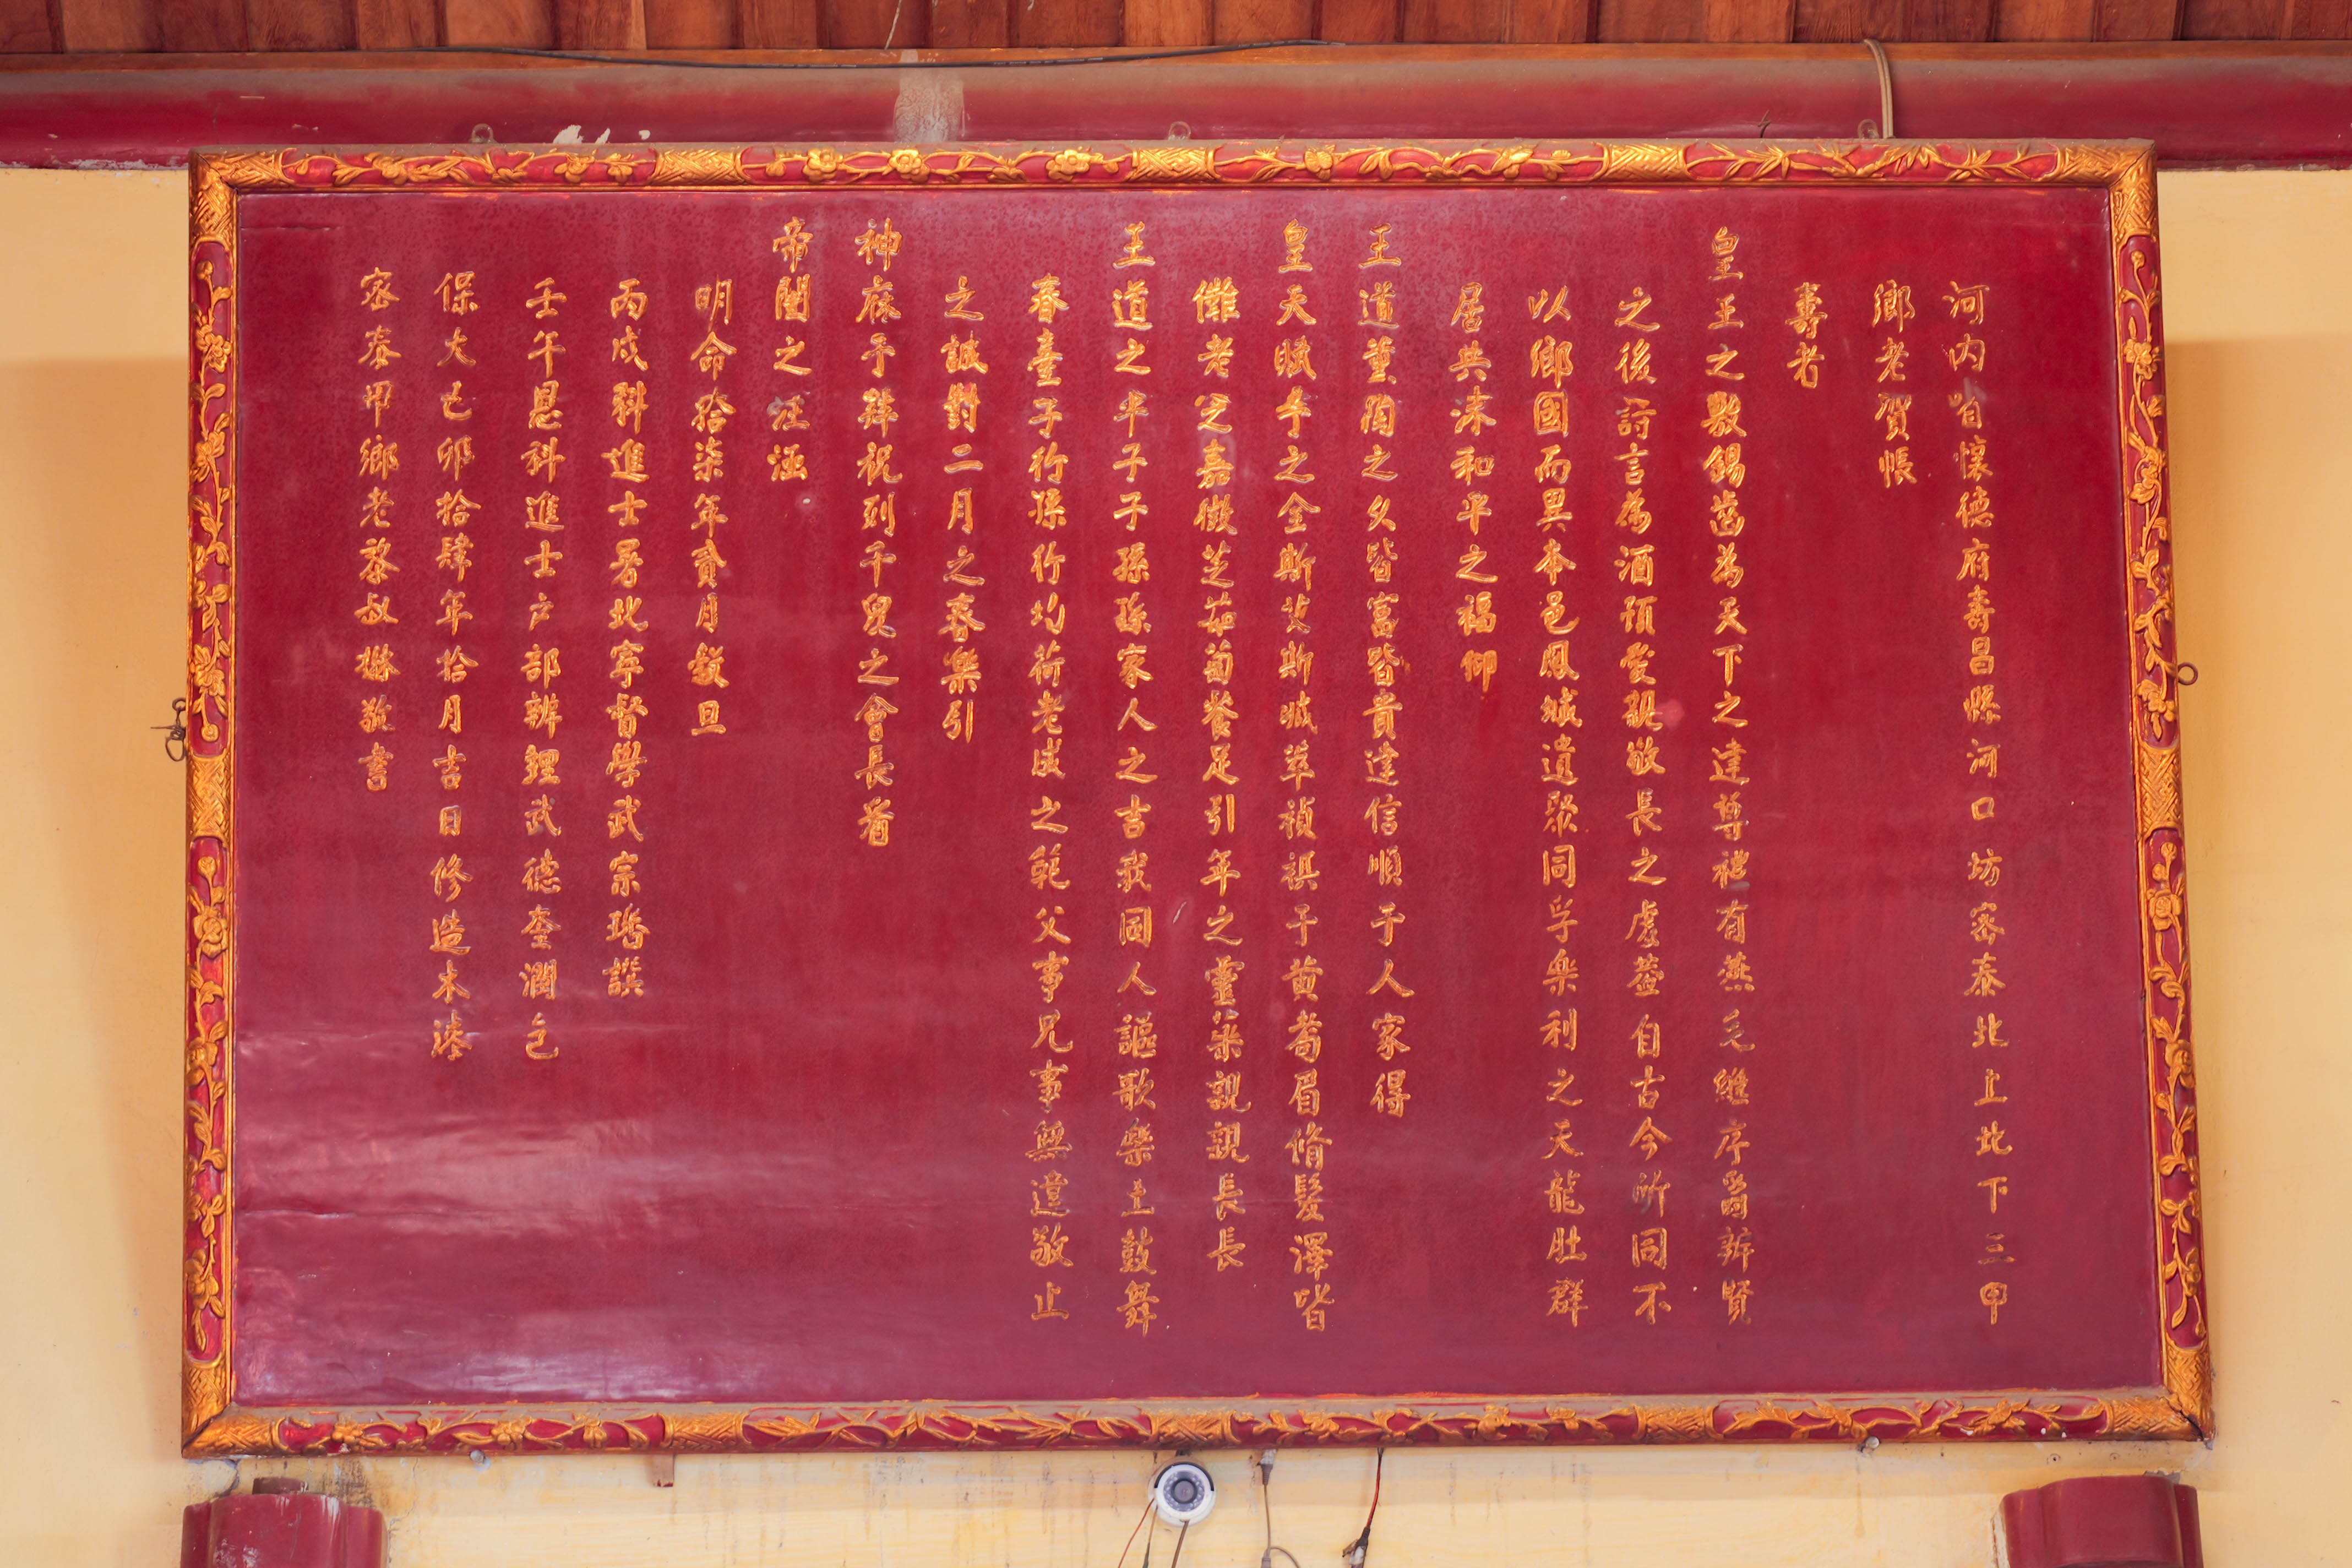 河内省懷德府壽昌縣河口坊密泰北上北下三甲
鄉老賀帳
壽者
皇王之敷錫齒為天下之達尊禮有燕毛繼序爵辨賢
之後詩言為酒預愛親敬長之虔蓋自古今所同不
以鄉國而異本邑鳳城遺聚同孚樂利之天龍肚群
居共沐和平之福仰
王道薰陶之久皆富皆貴達信順于人家得
皇天賦予之全斯艾斯臧萃禎祺于黃耈眉脩髮澤皆
儺老芝嘉徵芝茹菊餐足引年之靈藥親親長長
王道之平子子孫孫家人之吉我同人謳歌樂土鼓舞
春臺子行孫行均荷老成之範父事兄事無遺敬止
之誠對二月之春樂引
神庥予拜祝列千叟之會長看
帝閣之汪涵
明命拾柒年貳月穀旦
丙戌科進士署北寧督學武宗璠譔
壬午恩科進士户部辨理武德奎潤色
保大己卯拾肆年拾月吉日修造木漆
密泰甲鄉老黎叔楙敬書